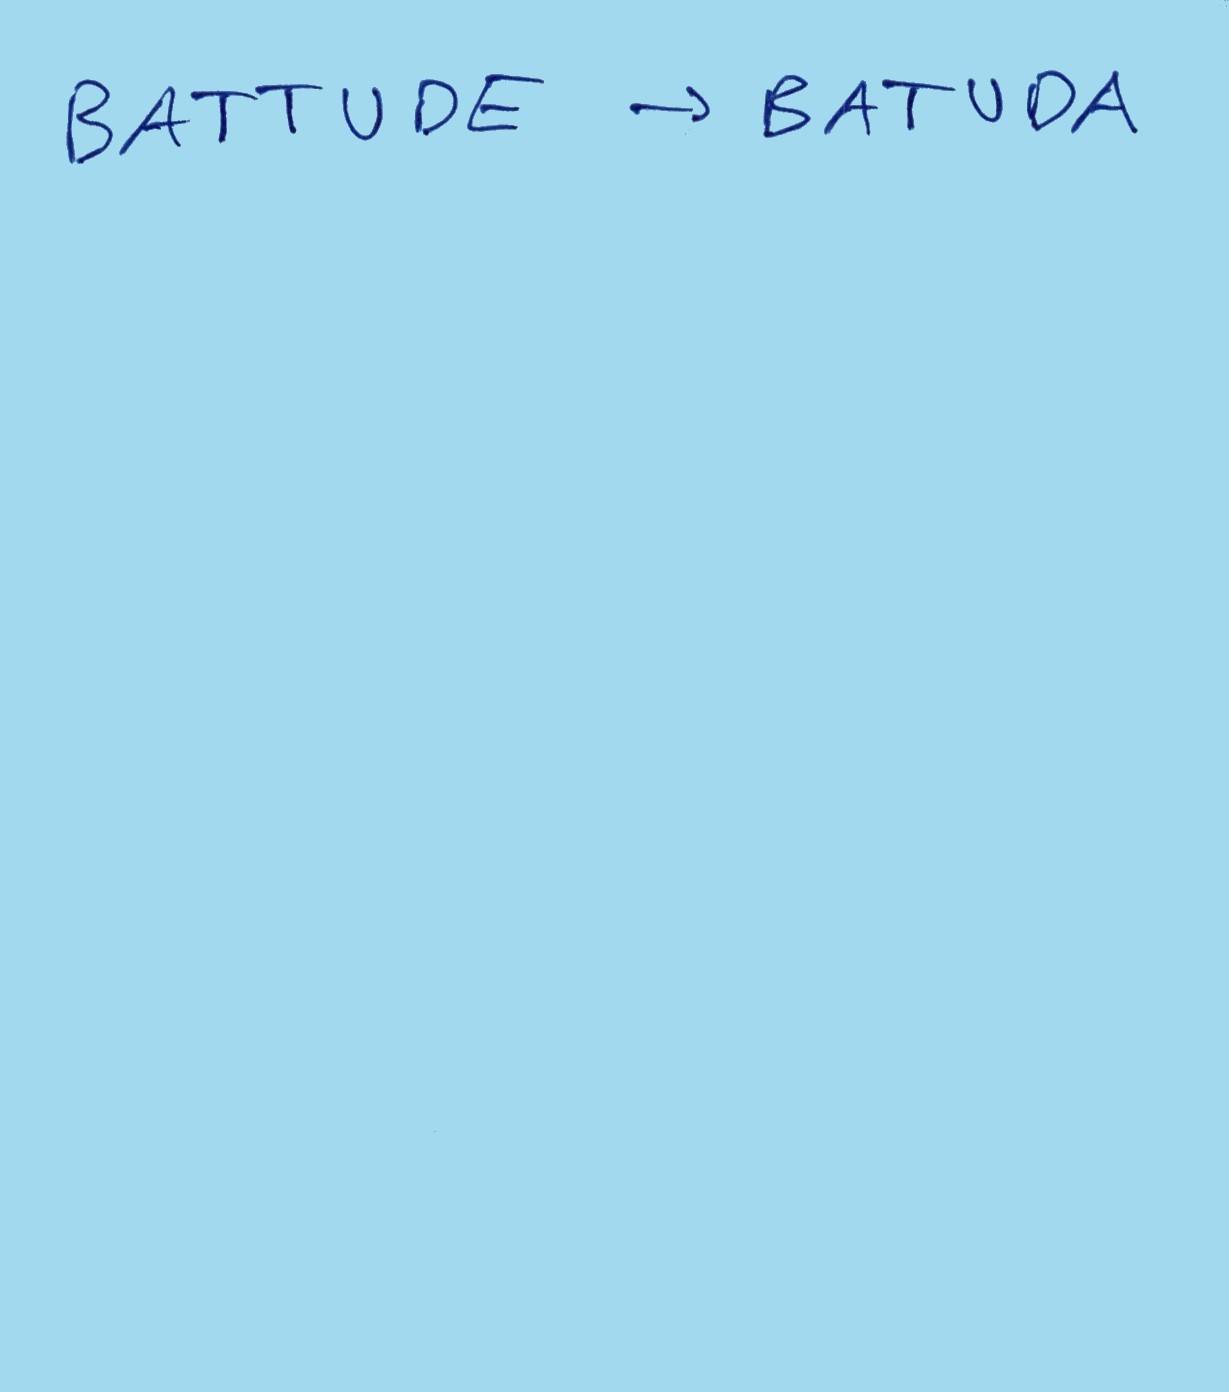 BATTUDE → BATUDA